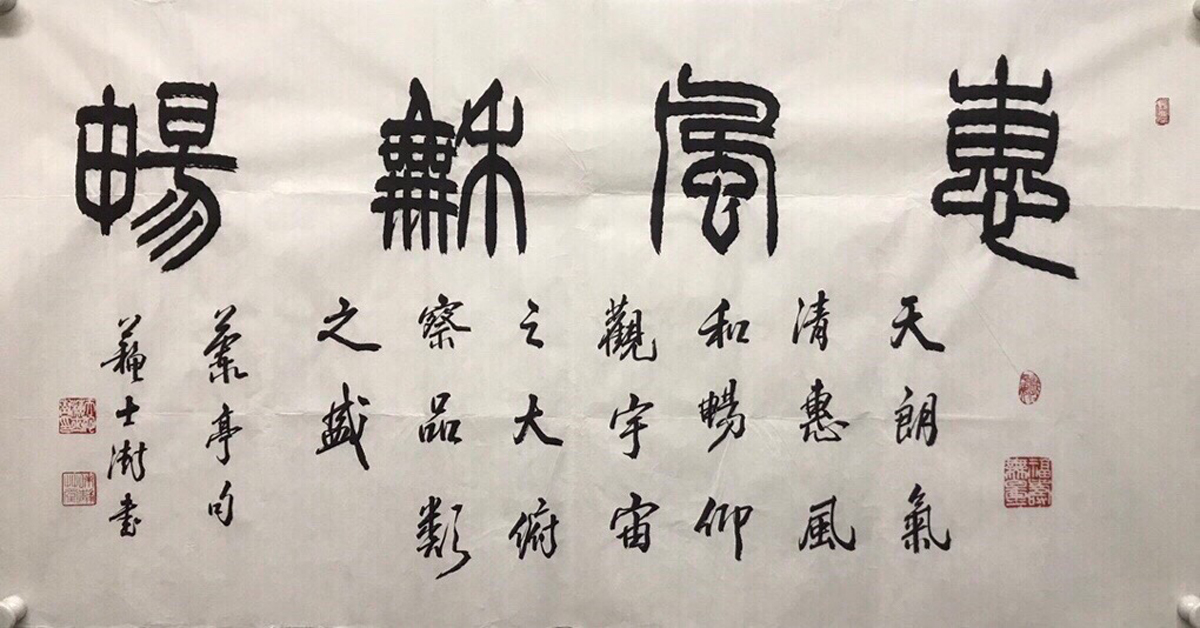 惠風龢暢
天朗氣
清惠風
和暢仰
觀宇宙
之大俯
察品類
之盛
蘭亭句
蘇士澍書
福壽
無量